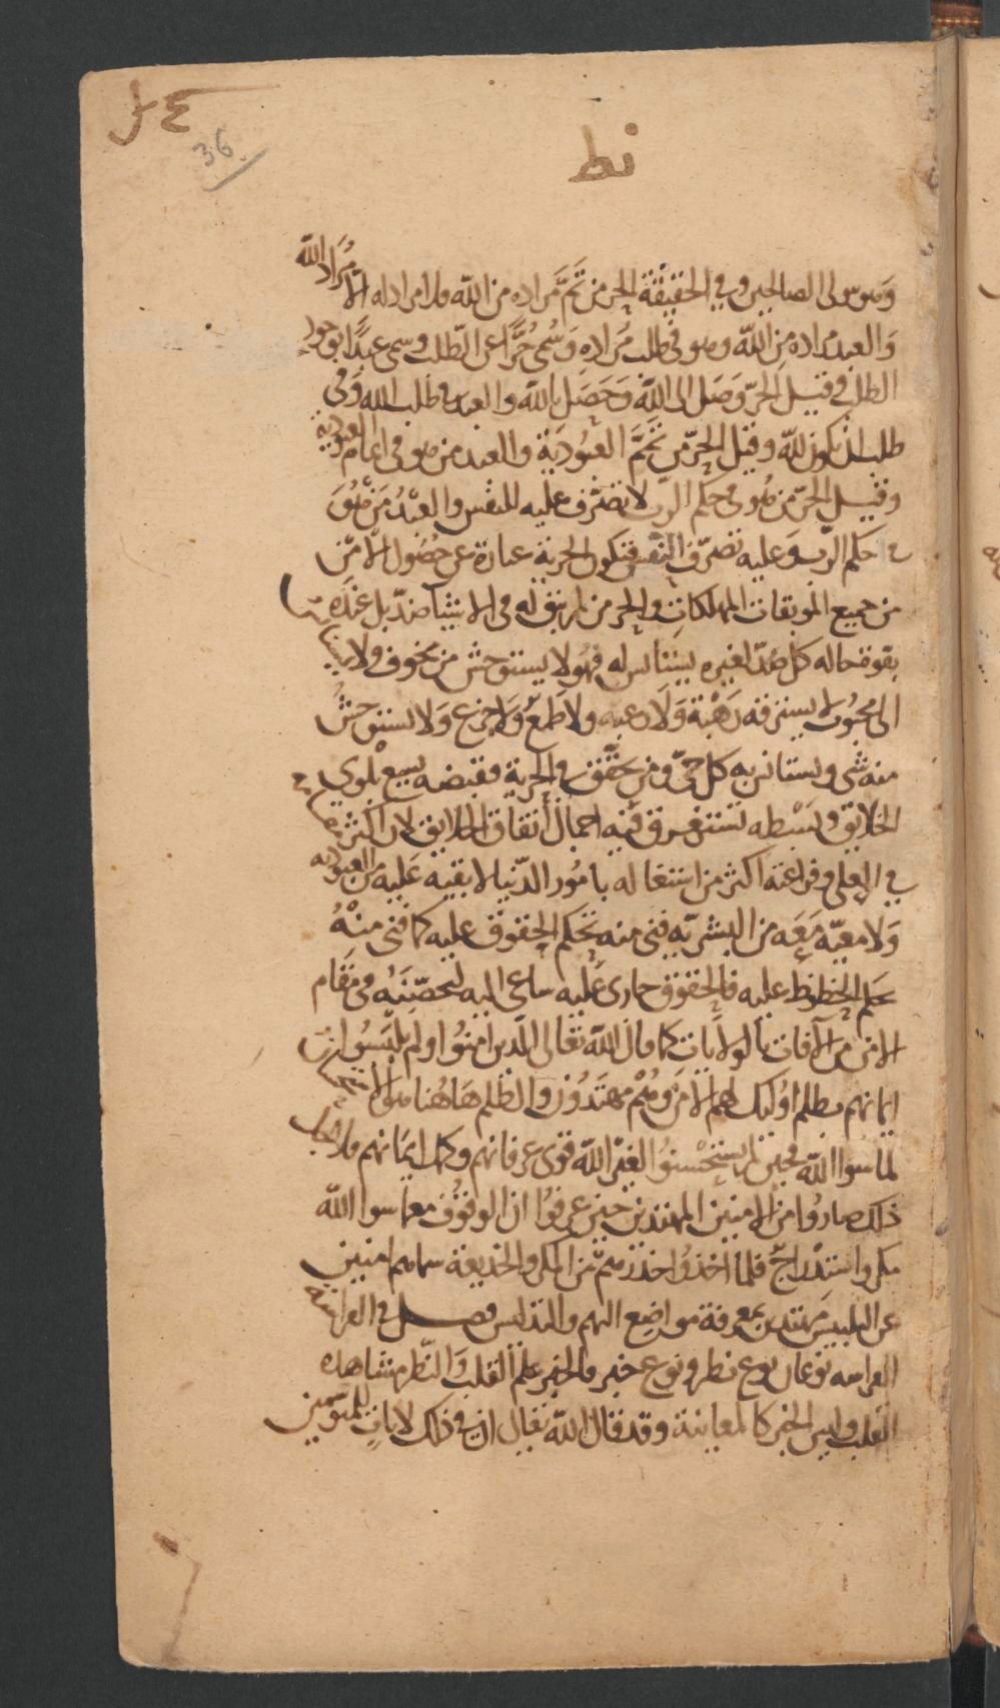 36
نط
وهو يتولى الصالحين وفي الحقيقة الحر من تَمَّ مُراده من الله فلا مراد له الا مُرادُ الله
وَالعبد مراده مِنَ اللّه وهو فى طلب مُراده وَسُمى حُرًّا عن الطّلب وسمى عبدًا بوجود
الطلب وقيل الحرّ وَصَل الى الله وَحَصَل بالله والعبد فى طلب الله وَفى
طلب ان يكون لله وقيل الحرّ من تَمَّمَ العبُودَية والعبد من هو فى اتمام العبودية
وقيل الحرّ من هُو فى حكم الربّ لا تصرّف عليه للنفس والعبْدُ مَنْ هُوَ
فى حكم الرّب وَعليه تصرّف النّفس فتكون الحرية عبارة عن حصُول الامن
من جميع الموبقات المهلكات والحر من لم يبق له فى الاشيآ ضدّ بل عنده
بقوة حاله كل ضدّ لغيره يستأنس له فهُو لا يستوحش من مخوف ولا
الى محبُوب لا يسترقه رَهْبة وَلَا رغبه ولا طَمَع وَلا جزع وَلا يستوحش
منه شى ويستانس به كل حىّ ومن تحقّق فى الحرية فقبضه يسع بلوى
الخلايق وبَسْطه تستغرق فيه احمال أثقال الخلايق لان
فى الله وفراغته اكثر من اشتغاله بامُور الدّنيا لا بقيه عَليه من العبوديه
وَلا معيّه مَعَه من البشريّه فنى منه تحكم الحقوق عليه كما فنى منْهُ
تحكم الحظوظ عليه فالحقوق جارى عَليه ساعى اليه لتحصّنَه فى مَقَام
الامن من الآفات بالولايات كما قال الله تعالى الّذين امنُوا ولم يلْبَسُوا
ايمانهم بظلم اوُليك لهم الامن وهُمْ مهتَدُون والظلم هَاهُنا
لما سِوا اللّه فحين لم يستحْسنُوا لغيْر اللّه قوى عرفانهم وكمل ايمَانهم فلا
ذلك صارُوا من الامنين المهتدين حين عرفُوا ان الوقُوف مع ما سوا اللّه
مكر واستدْراج فلما اخذُوا حذرهم من المكر والخديعة سماهم امنين
عن التلبيس مهتدين بمعرفة مواضع التهم والتدليس فصل فى الفراسة
الفراسه نوعان نوع نظر ونوع خبر فالخبر علم القلب وَالنّظر مشاهده
القلب وليس الخبر كالمعاينة وقد قال الله تعالى ان فى ذلك لايات للمتوسّمين